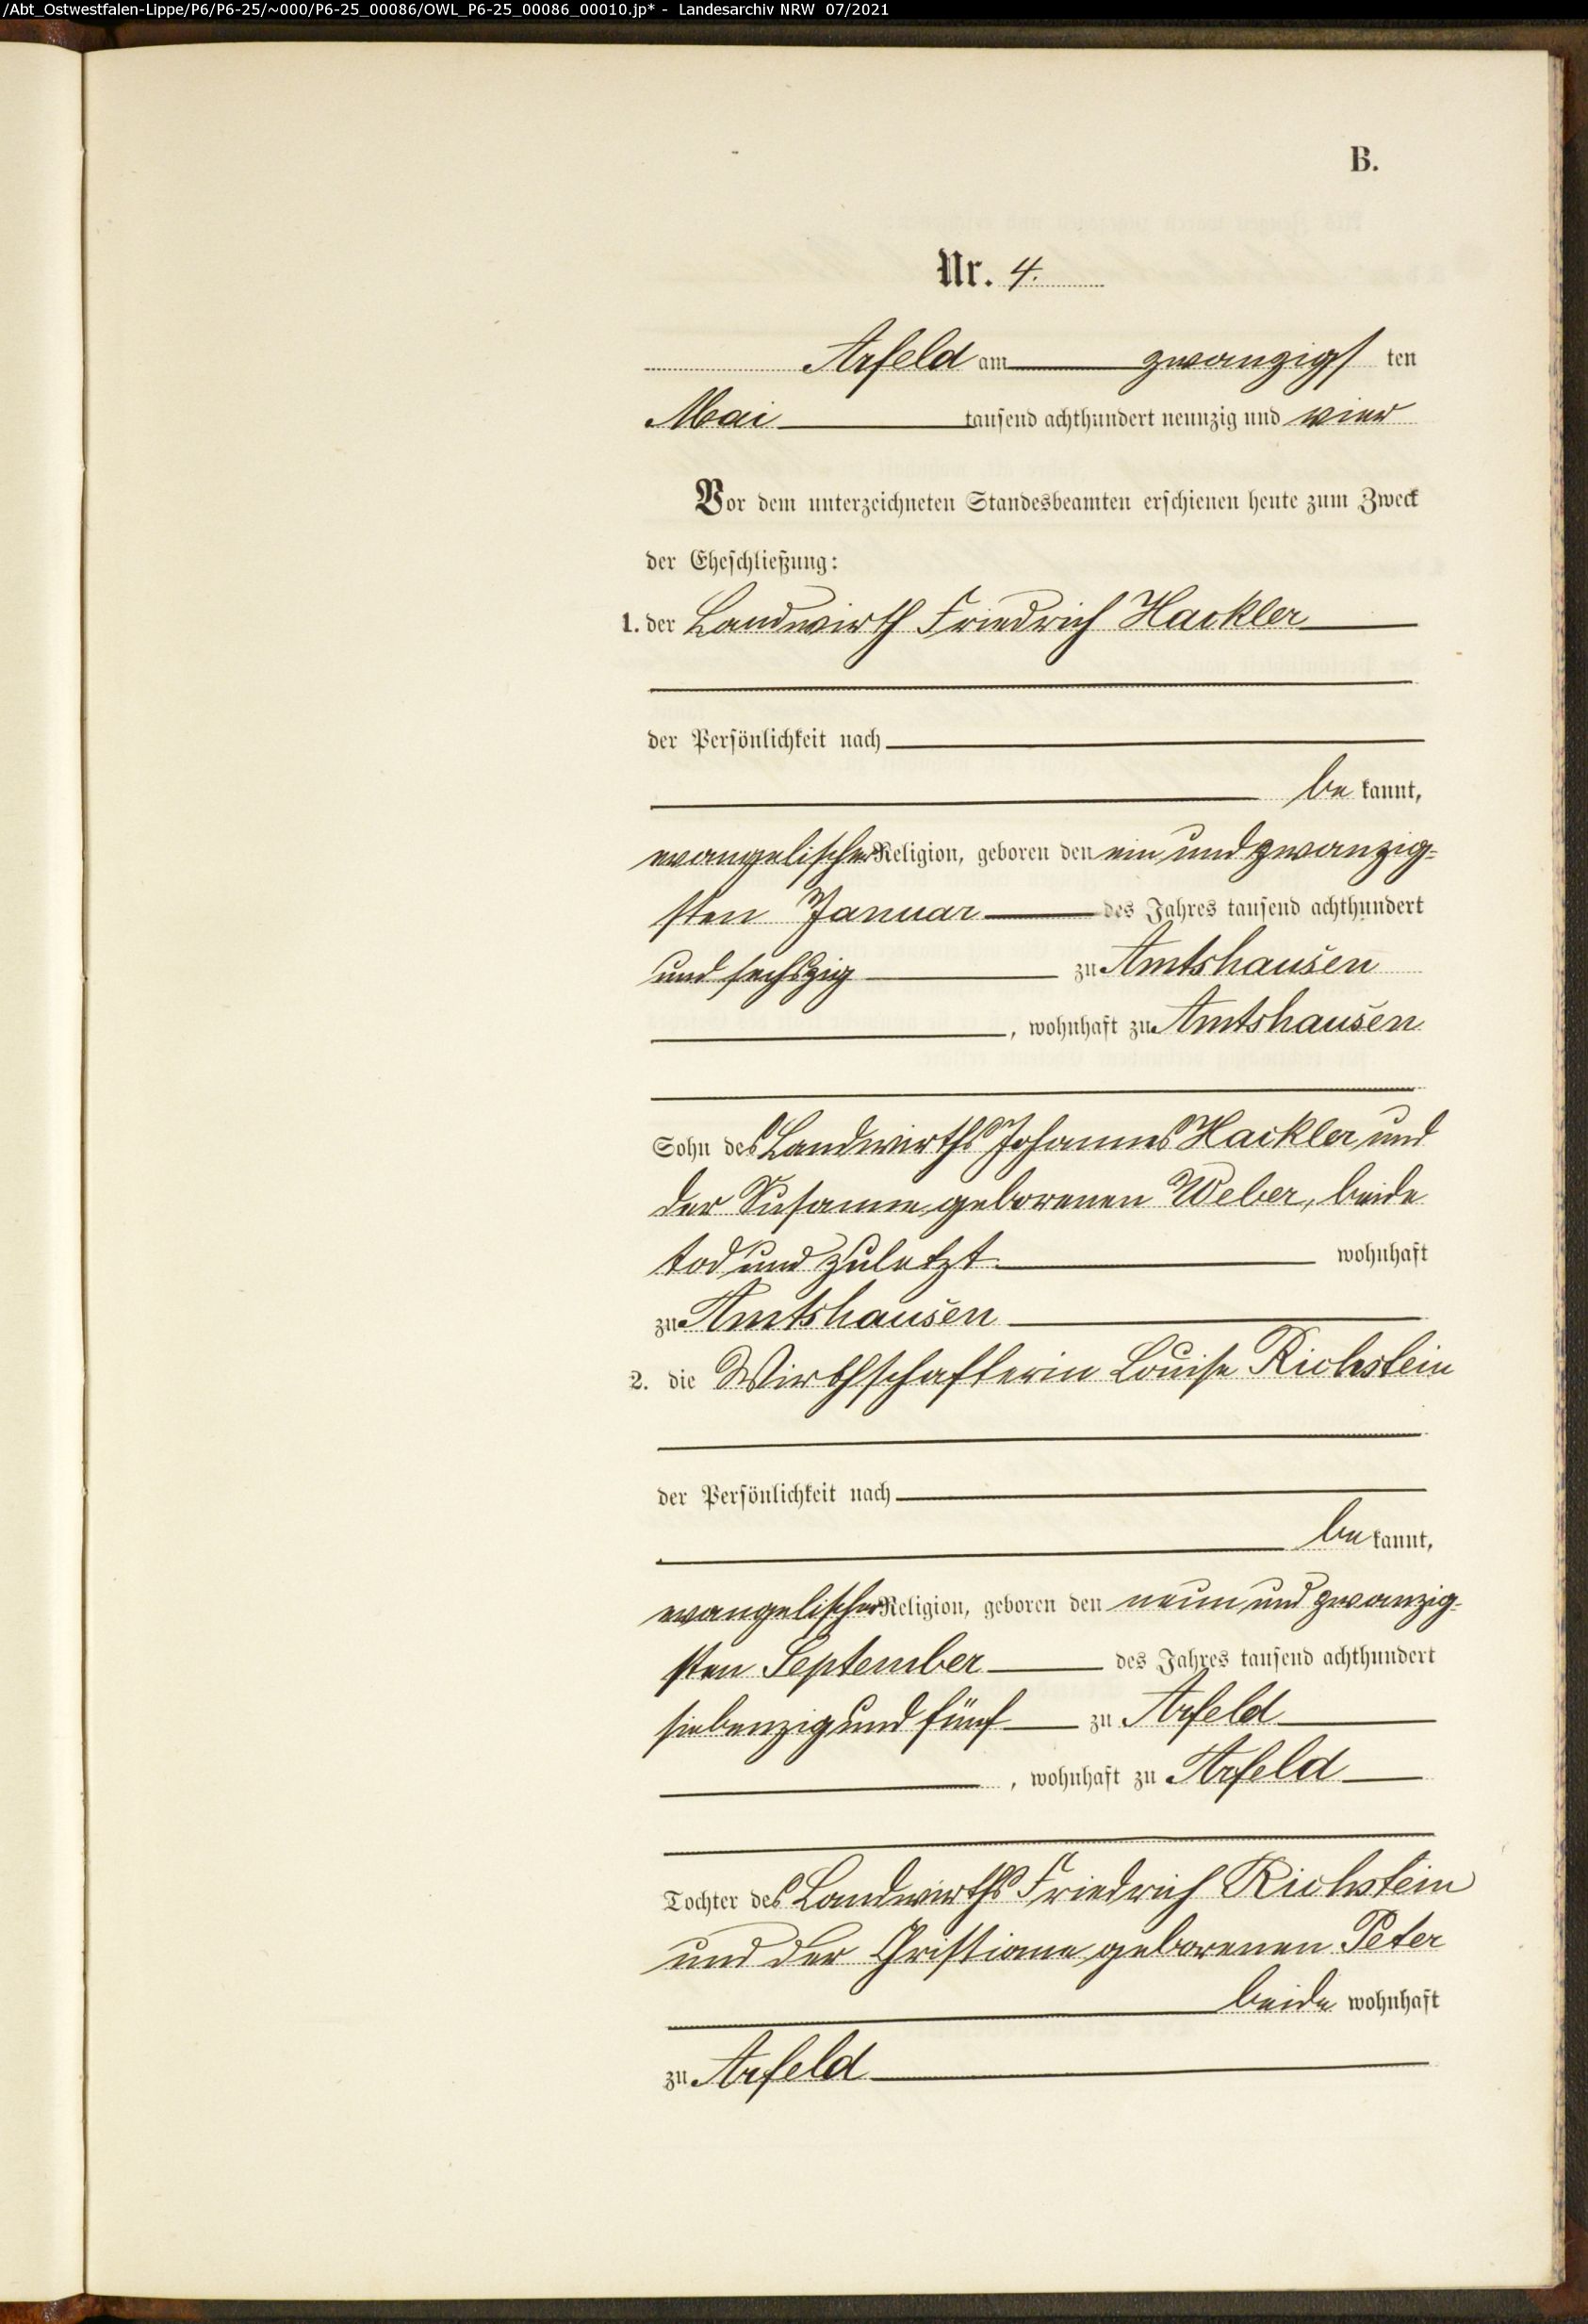 /Abt_Ostwestfalen-Lippe/P6/P6-25/~000/P6-25_00086/OWL_P6-25_00086_00010.jp* - Landesarchiv NRW 07/2021
B.
Nr. 4.
Arfeld am zwanzigsten
Mai tausend achthundert neunzig und vier
Vor dem unterzeichneten Standesbeamten erschienen heute zum Zweck
der Eheschließung:
1. der Landwirth Friedrich Hackler
der Persönlichkeit nach
be kannt,
evangelischer Religion, geboren den ein und zwanzig-
sten Januar des Jahres tausend achthundert
und sechszig zu Amtshausen
, wohnhaft zu Amtshausen
Sohn des Landwirths Johannes Hackler und
der Susanne geborenen Weber, beide
tod und zuletzt wohnhaft
zu Amtshausen
2. die Wirthschafterin Louise Richstein
der Persönlichkeit nach
be kannt,
evangelischer Religion, geboren den neun und zwanzig-
sten September des Jahres tausend achthundert
siebenzig und fünf zu Arfeld
, wohnhaft zu Arfeld
Tochter des Landwirths Friedrich Richstein
und der Christiane geborenen Peter
beide wohnhaft
zu Arfeld